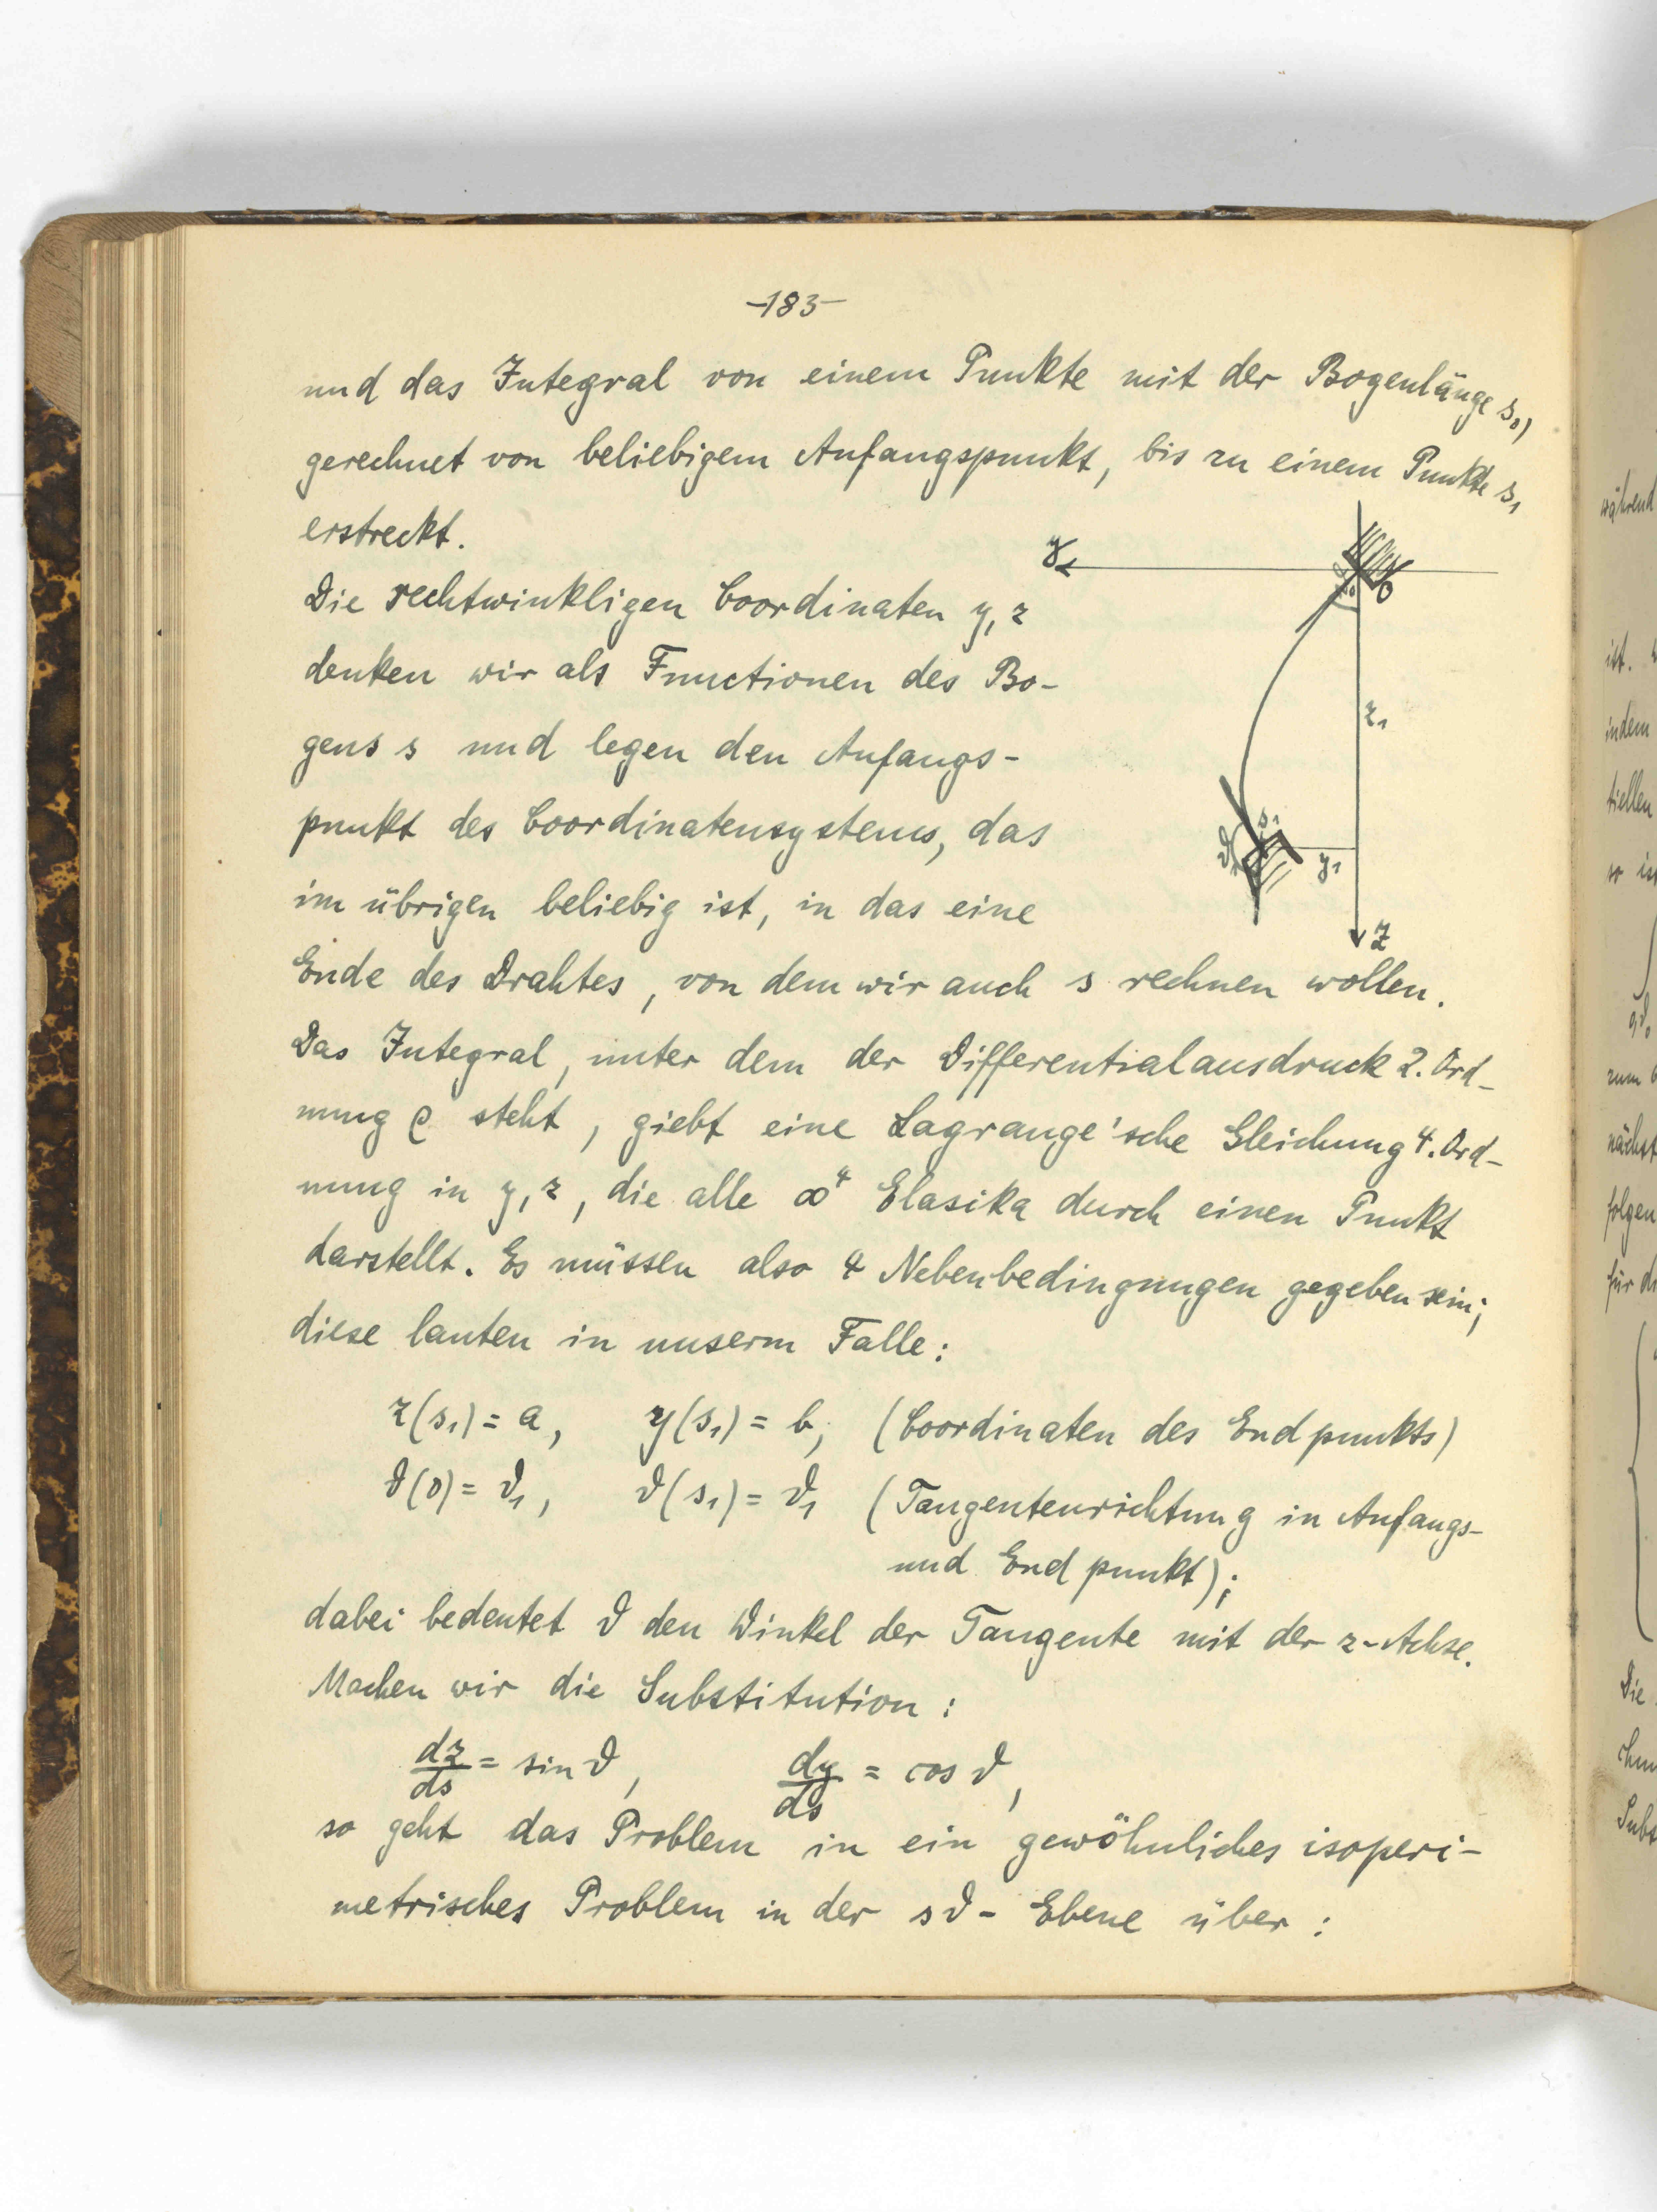 -183-
und das Integral von einem Punkte mit der Bogenlänge s₀,
gerechnet von beliebigem Anfangspunkt, bis zu einem Punkte s₁
erstreckt.
y
0
ϑ₀
Die rechtwinkligen Coordinaten y, z
denken wir als Functionen des Bo-
gens s und legen den Anfangs-
z₁
punkt des Coordinatensystems, das
s₁
ϑ₁
y₁
im übrigen beliebig ist, in das eine
z
Ende des Drahtes, von dem wir auch s rechnen wollen.
Das Integral, unter dem der Differentialausdruck 2. Ord-
nung ϱ steht, giebt eine Lagrange'sche Gleichung 4. Ord-
nung in y, z, die alle ∞⁴ Elasika durch einen Punkt
darstellt. Es müssen also 4 Nebenbedingungen gegeben sein;
diese lauten in unserm Falle:
z(s₁) = a, y(s₁) = b, (Coordinaten des Endpunkts)
ϑ(0) = ϑ₁, ϑ(s₁) = ϑ₁ (Tangentenrichtung in Anfangs-
und Endpunkt);
dabei bedeutet ϑ den Winkel der Tangente mit der z-Achse.
Machen wir die Substitution:
dz/ds = sin ϑ, dy/ds = cos ϑ,
so geht das Problem in ein gewöhnliches isoperi-
metrisches Problem in der sϑ-Ebene über:
während
ist.
indem
tiellen
so
zum
nächst
folgen
für
Die